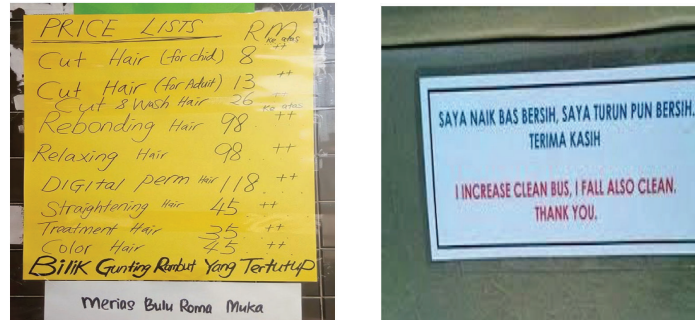 PRICE LISTS RM
ke atas
Cut Hair (for chid) 8 ++
Cut Hair (for Aduit) 13 ++
Cut & Wash Hair 26
ke atas
Rebonding Hair 98 ++
Relaxing Hair 98 ++
DIGItal perm Hair 118 ++
Straightening Hair 45 ++
Treatment Hair 35 ++
Color Hair 45 ++
Bilik Gunting Rambut Yang Tertutup
Merias Bulu Roma Muka
SAYA NAIK BAS BERSIH, SAYA TURUN PUN BERSIH.
TERIMA KASIH
I INCREASE CLEAN BUS, I FALL ALSO CLEAN.
THANK YOU.